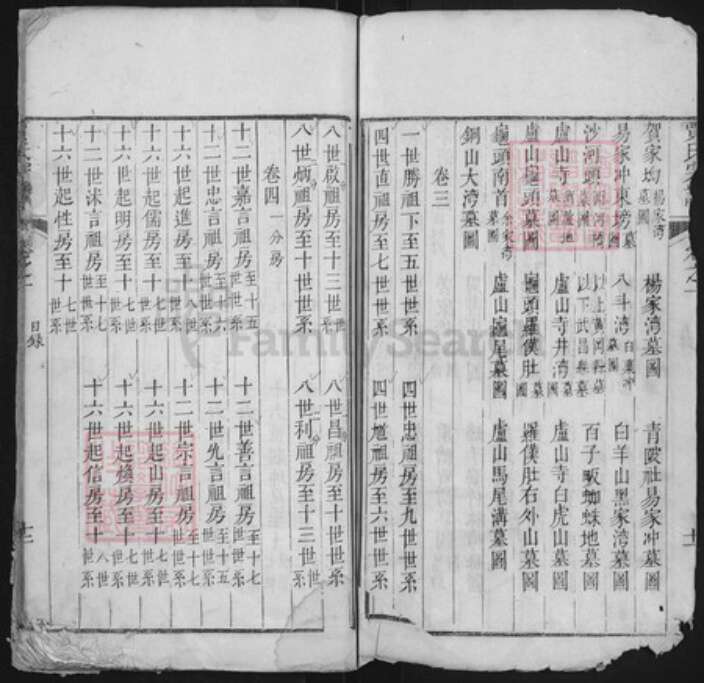 賀家坳墓圖 楊家灣 楊家灣墓圖 青陂社易家冲墓圖
易家冲東塝墓圖 八斗灣墓圖 白果冲 白羊山黑家灣墓圖
沙河頭墓圖 以下武昌縣墓 百子畈蜘蛛地墓圖
盧山寺墓圖 盧山寺井灣墓圖 盧山寺白虎山墓圖
盧山龜頭墓圖 龜頭羅僕肚墓圖 羅僕肚右外山墓圖
龜頭南首墓圖 盧山龜尾墓圖 盧山馬尾溝墓圖
銅山大灣墓圖
卷三
一世勝祖下至五世世系 四世忠祖房至九世世系
四世直祖房至七世世系 四世尴祖房至六世世系
八世啟祖房至十三世世系 八世昌祖房至十世世系
八世炳祖房至十世世系 八世利祖房至十三世世系
卷四 一分房
十二世嘉言祖房至十五世世系 十二世善言祖房至十七世世系
十二世忠言祖房至十六世世系 十二世先言祖房至十五世世系
十六世起進房至十八世世系 十二世宗言祖房至十七世世系
十六世起儒房至十七世世系 十六世起山房至十七世世系
十六世起明房至十七世世系 十六世起煥房至十七世世系
十二世沫言祖房至十七世世系
十六世起性房至十七世世系 十六世起信房至十八世世系
目錄
十二
FamilySearch